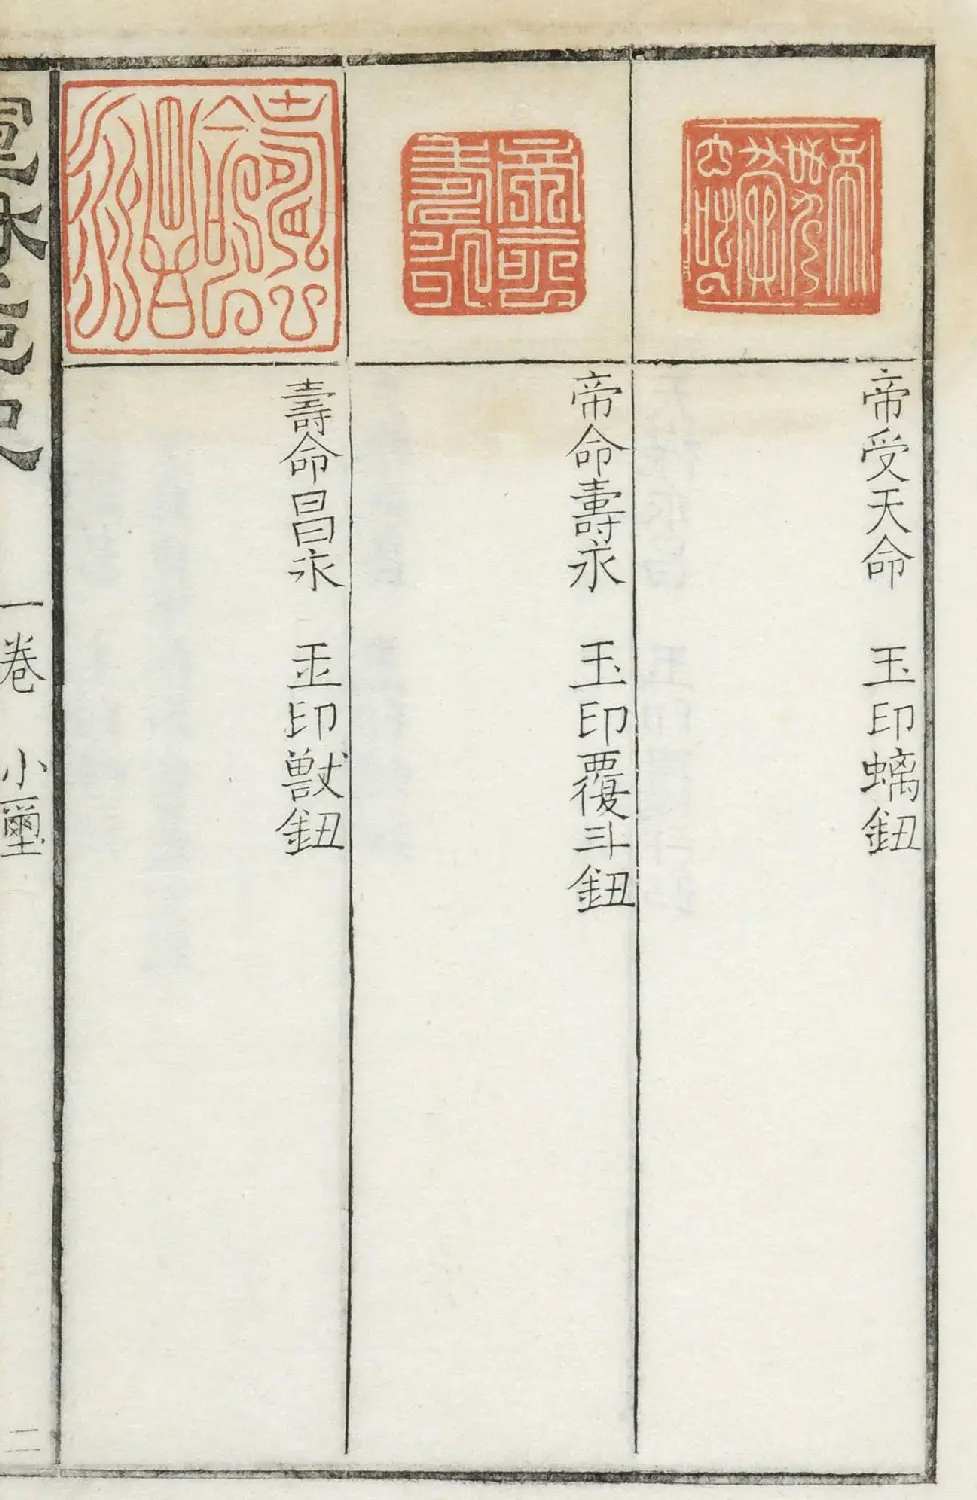 帝受天命　玉印螭鈕
帝命壽永　玉印覆斗鈕
壽命昌永　玉印獸鈕
一卷　小璽
二